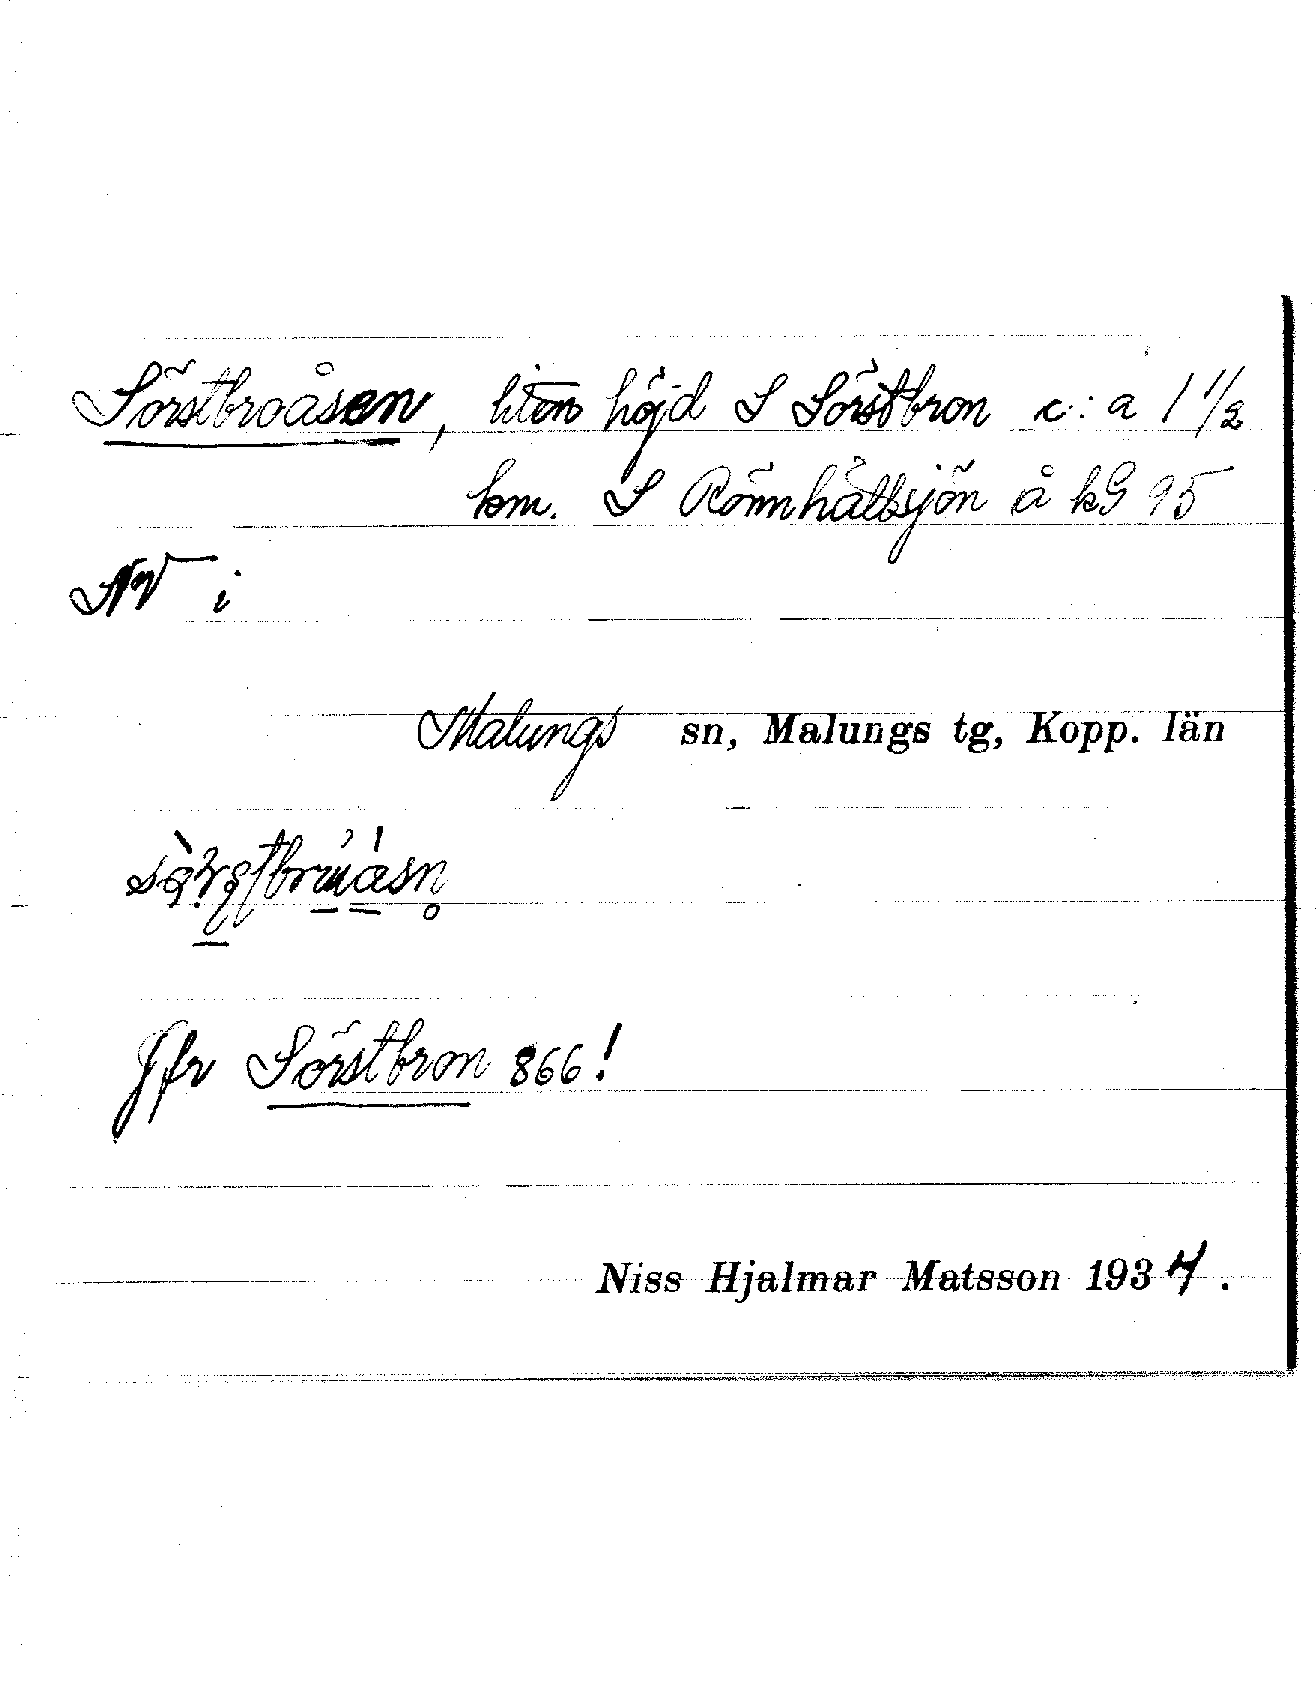 Sörstbroåsen, liten höjd S Sörstbron c:a 1 1/2
km. S Rönnhåltsjön å kG 95
NV i
Malungs sn, Malungs tg, Kopp. län
Jfr Sörstbron 866!
Niss Hjalmar Matsson 1934.